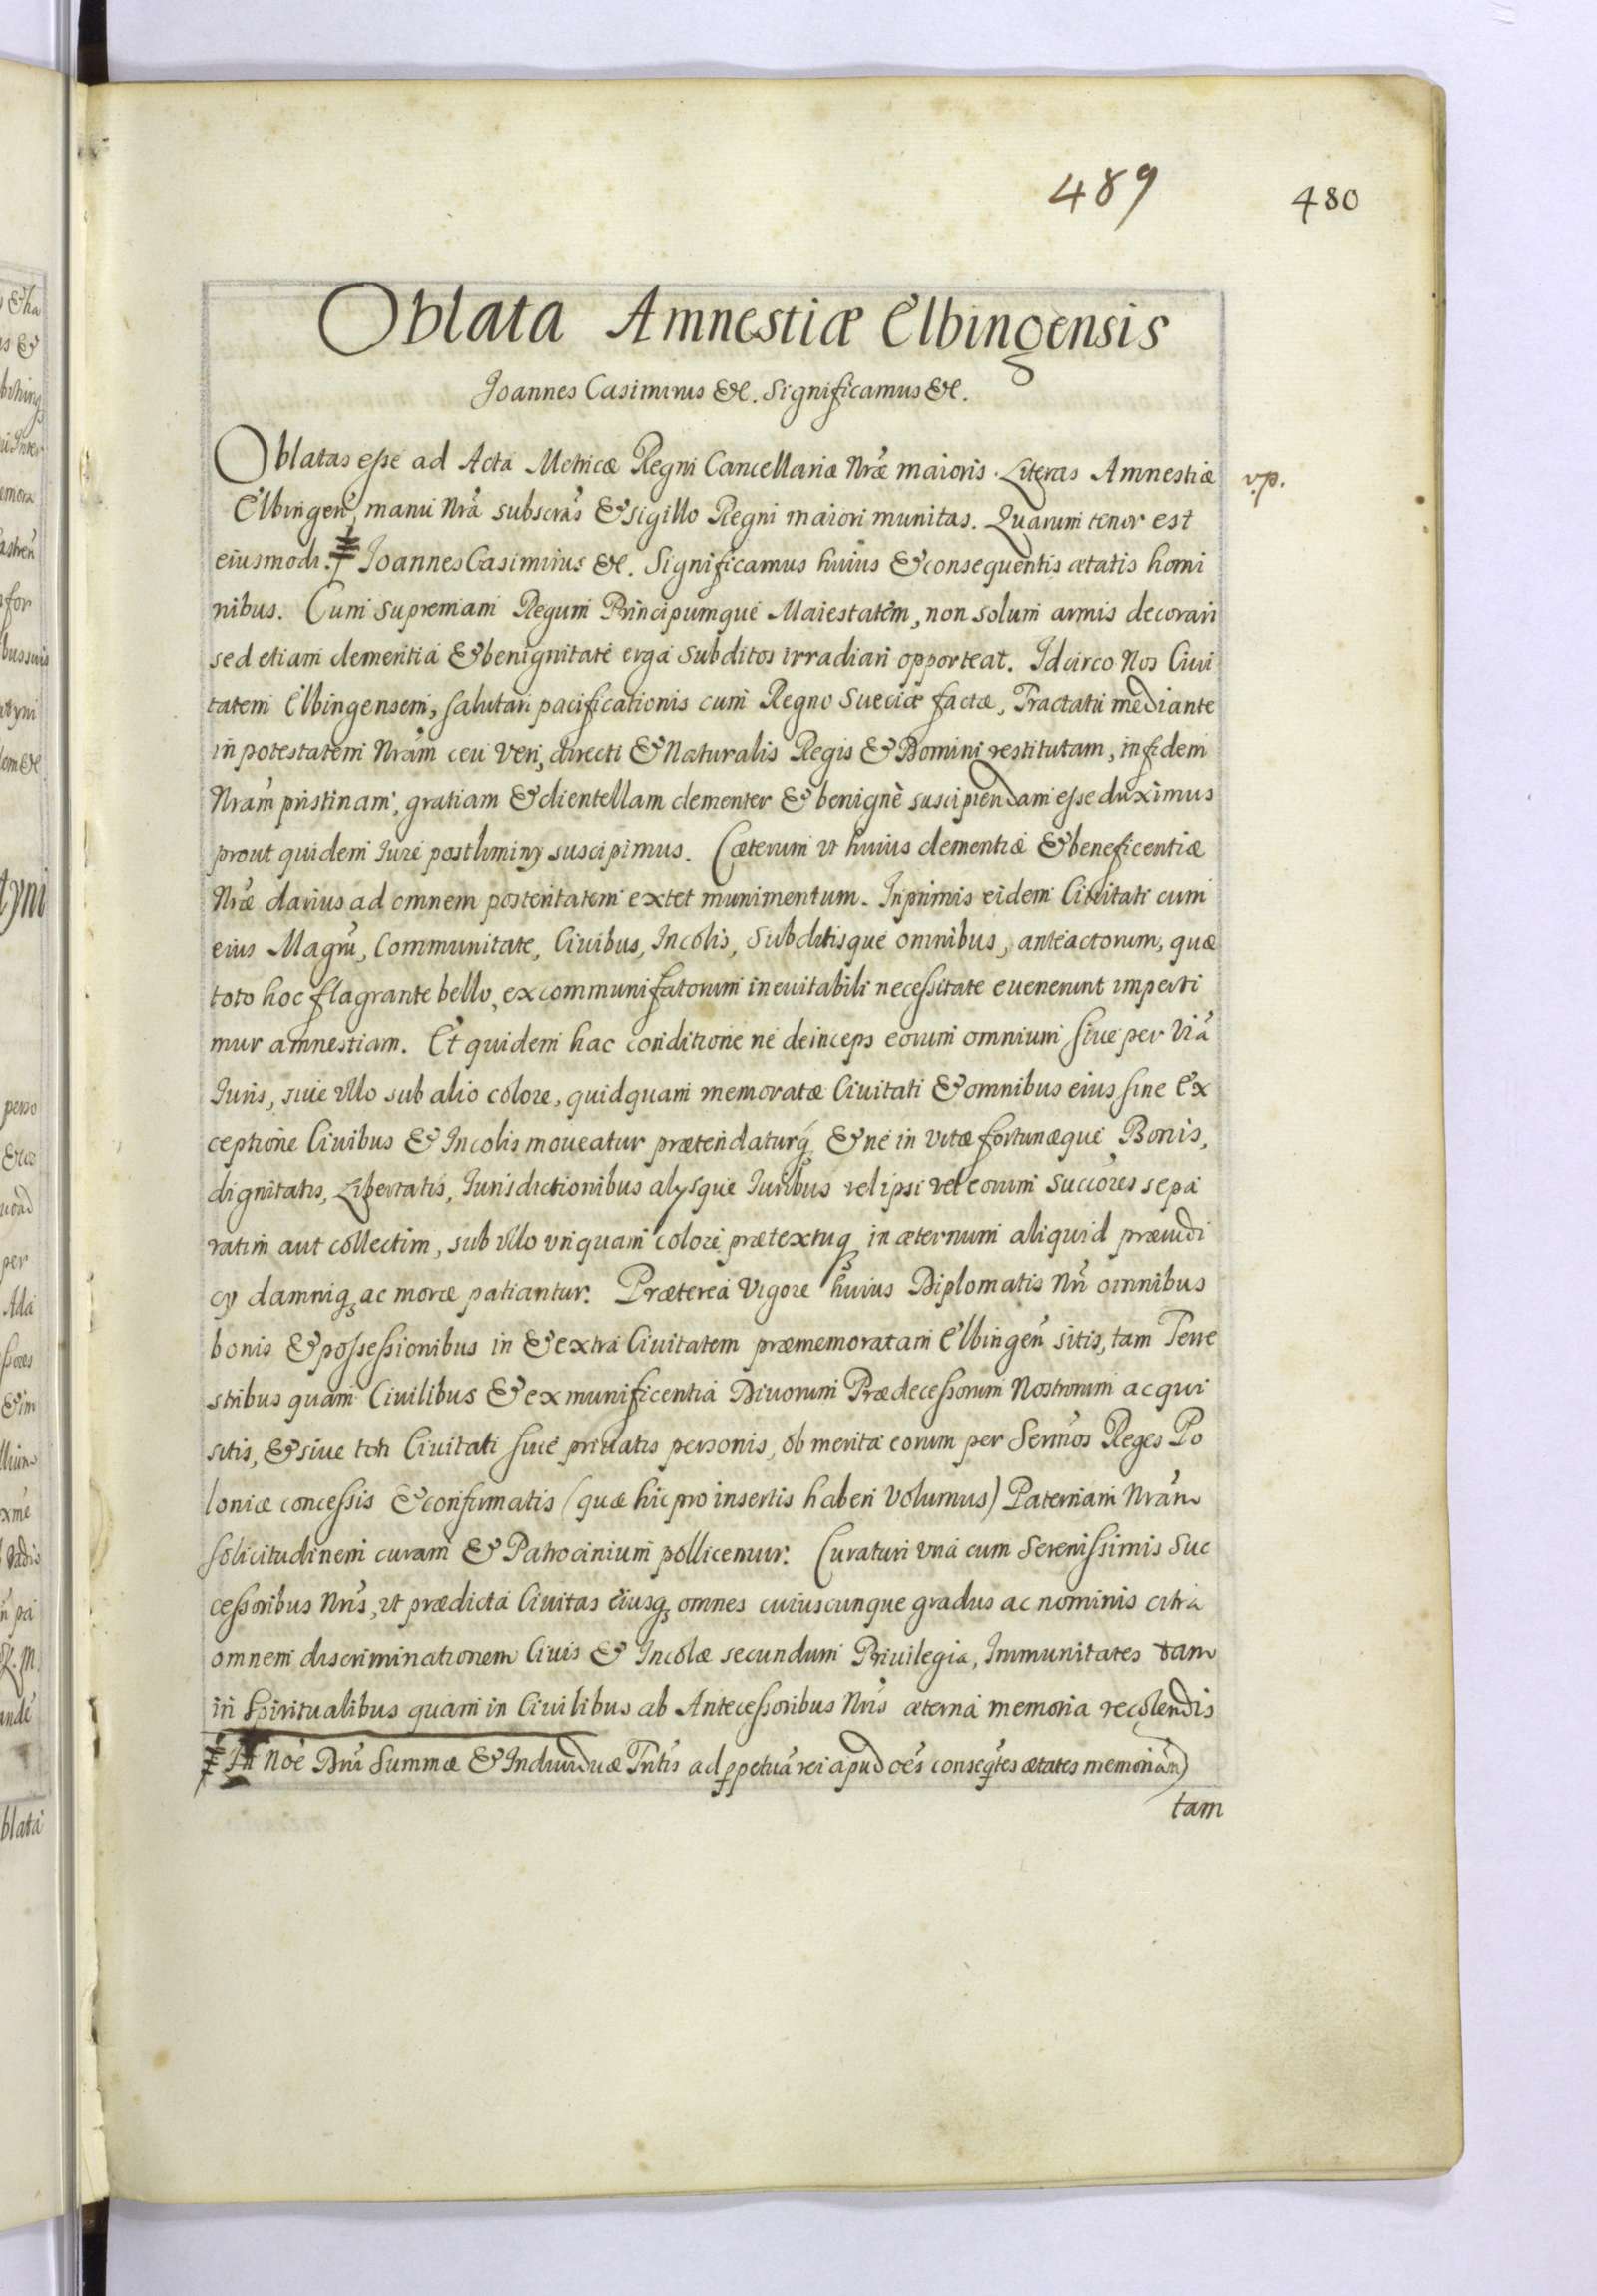 489
480
Oblata Amnestiæ Elbingensis
Joannes Casimirus &c. Significamus &c.
Oblatas esse ad Acta Metricæ Regni Cancellariæ Nræ maioris. Literas Amnestiæ v.p.
Elbingen̄, manu Nrā subscrās & sigillo Regni maiori munitas. Quarum tenor est
eiusmodi. Joannes Casimirus &c. Significamus huius & consequentis ætatis homi
nibus. Cum supremam Regum Principumque Maiestatem, non solum armis decorari
sed etiam clementia & benignitate erga subditos irradiari opporteat. Idcirco Nos Ciui
tatem Elbingensem, salutari pacificationis cum Regno Sueciæ factæ, Tractatu mediante
in potestatem Nrām ceu veri, directi & Naturalis Regis & Domini restitutam, in fidem
Nrām pristinam, gratiam & clientellam clementer & benignè suscipiendam esse duximus
prout quidem Jure postliminij suscipimus. Cæterum vt huius clementiæ & beneficentiæ
Nræ clarius ad omnem posteritatem extet munimentum. Inprimis eidem Ciuitati cum
eius Magrū, Communitate, Ciuibus, Incolis, Subditisque omnibus, anteactorum, quæ
toto hoc flagrante bello, ex communi fatorum ineuitabili necessitate euenerunt imperti
mur amnestiam. Et quidem hac conditione ne deinceps eorum omnium siue per viā
Juris, siue vllo sub alio colore, quidquam memoratæ Ciuitati & omnibus eius sine Ex
ceptione Ciuibus & Incolis moueatur prætendaturq́ & ne in vitæ fortunæque Bonis,
dignitatis, Libertatis, Jurisdictionibus alysque Juribus vel ipsi vel eorum succōres sepa
ratim aut collectim, sub vllo vnquam colore prætextuq, in æternum aliquid præiudi
cy damniq, ac moræ patiantur. Præterea vigore huius Diplomatis Nrī omnibus
bonis & possessionibus in & extra Ciuitatem præmemoratam Elbingen̄ sitis, tam Terre
stribus quam Ciuilibus & ex munificentia Diuorum Prædecessorum Nostrorum acqui
sitis, & siue toti Ciuitati siue priuatis personis, ob merita eorum per Sermōs Reges Po
loniæ concessis & confirmatis (quæ hic pro insertis haberi volumus) Paternam Nrām
solicitudinem curam & Patrocinium pollicemur. Curaturi vna cum Serenissimis Suc
cessoribus Nrīs, vt prædicta Ciuitas eiusq, omnes cuiuscunque gradus ac nominis citra
omnem discriminationem Ciuis & Incolæ secundum Priuilegia, Immunitates tam
in Spiritualibus quam in Ciuilibus ab Antecessoribus Nrīs æterna memoria recolendis
In Nōe Dnī Summæ & Indiuiduæ Trītis ad ꝑpetuā rei apud oēs conseqtes ætates memoriām)
tam